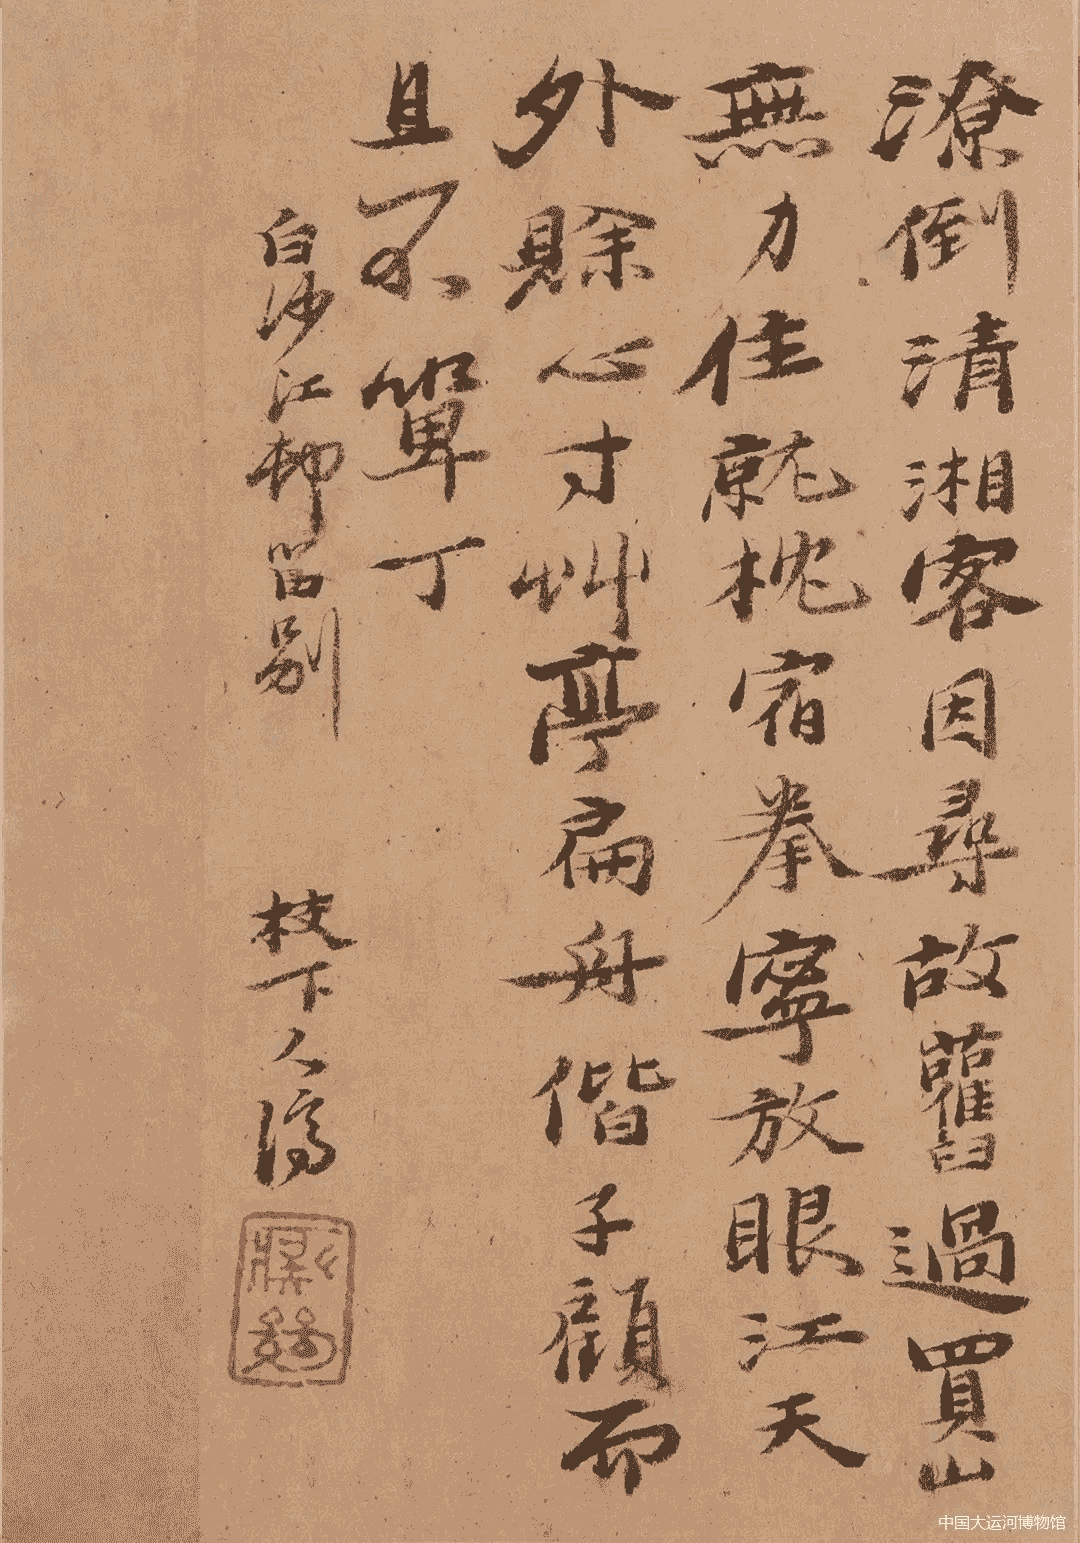 潦倒清湘客因尋故舊過買山
無力住就枕宿拳寧放眼江天
外賒心寸艸亭扁舟偕子顧而
且不箄丁
白沙江邨留别
枝下人濟
中国大运河博物馆